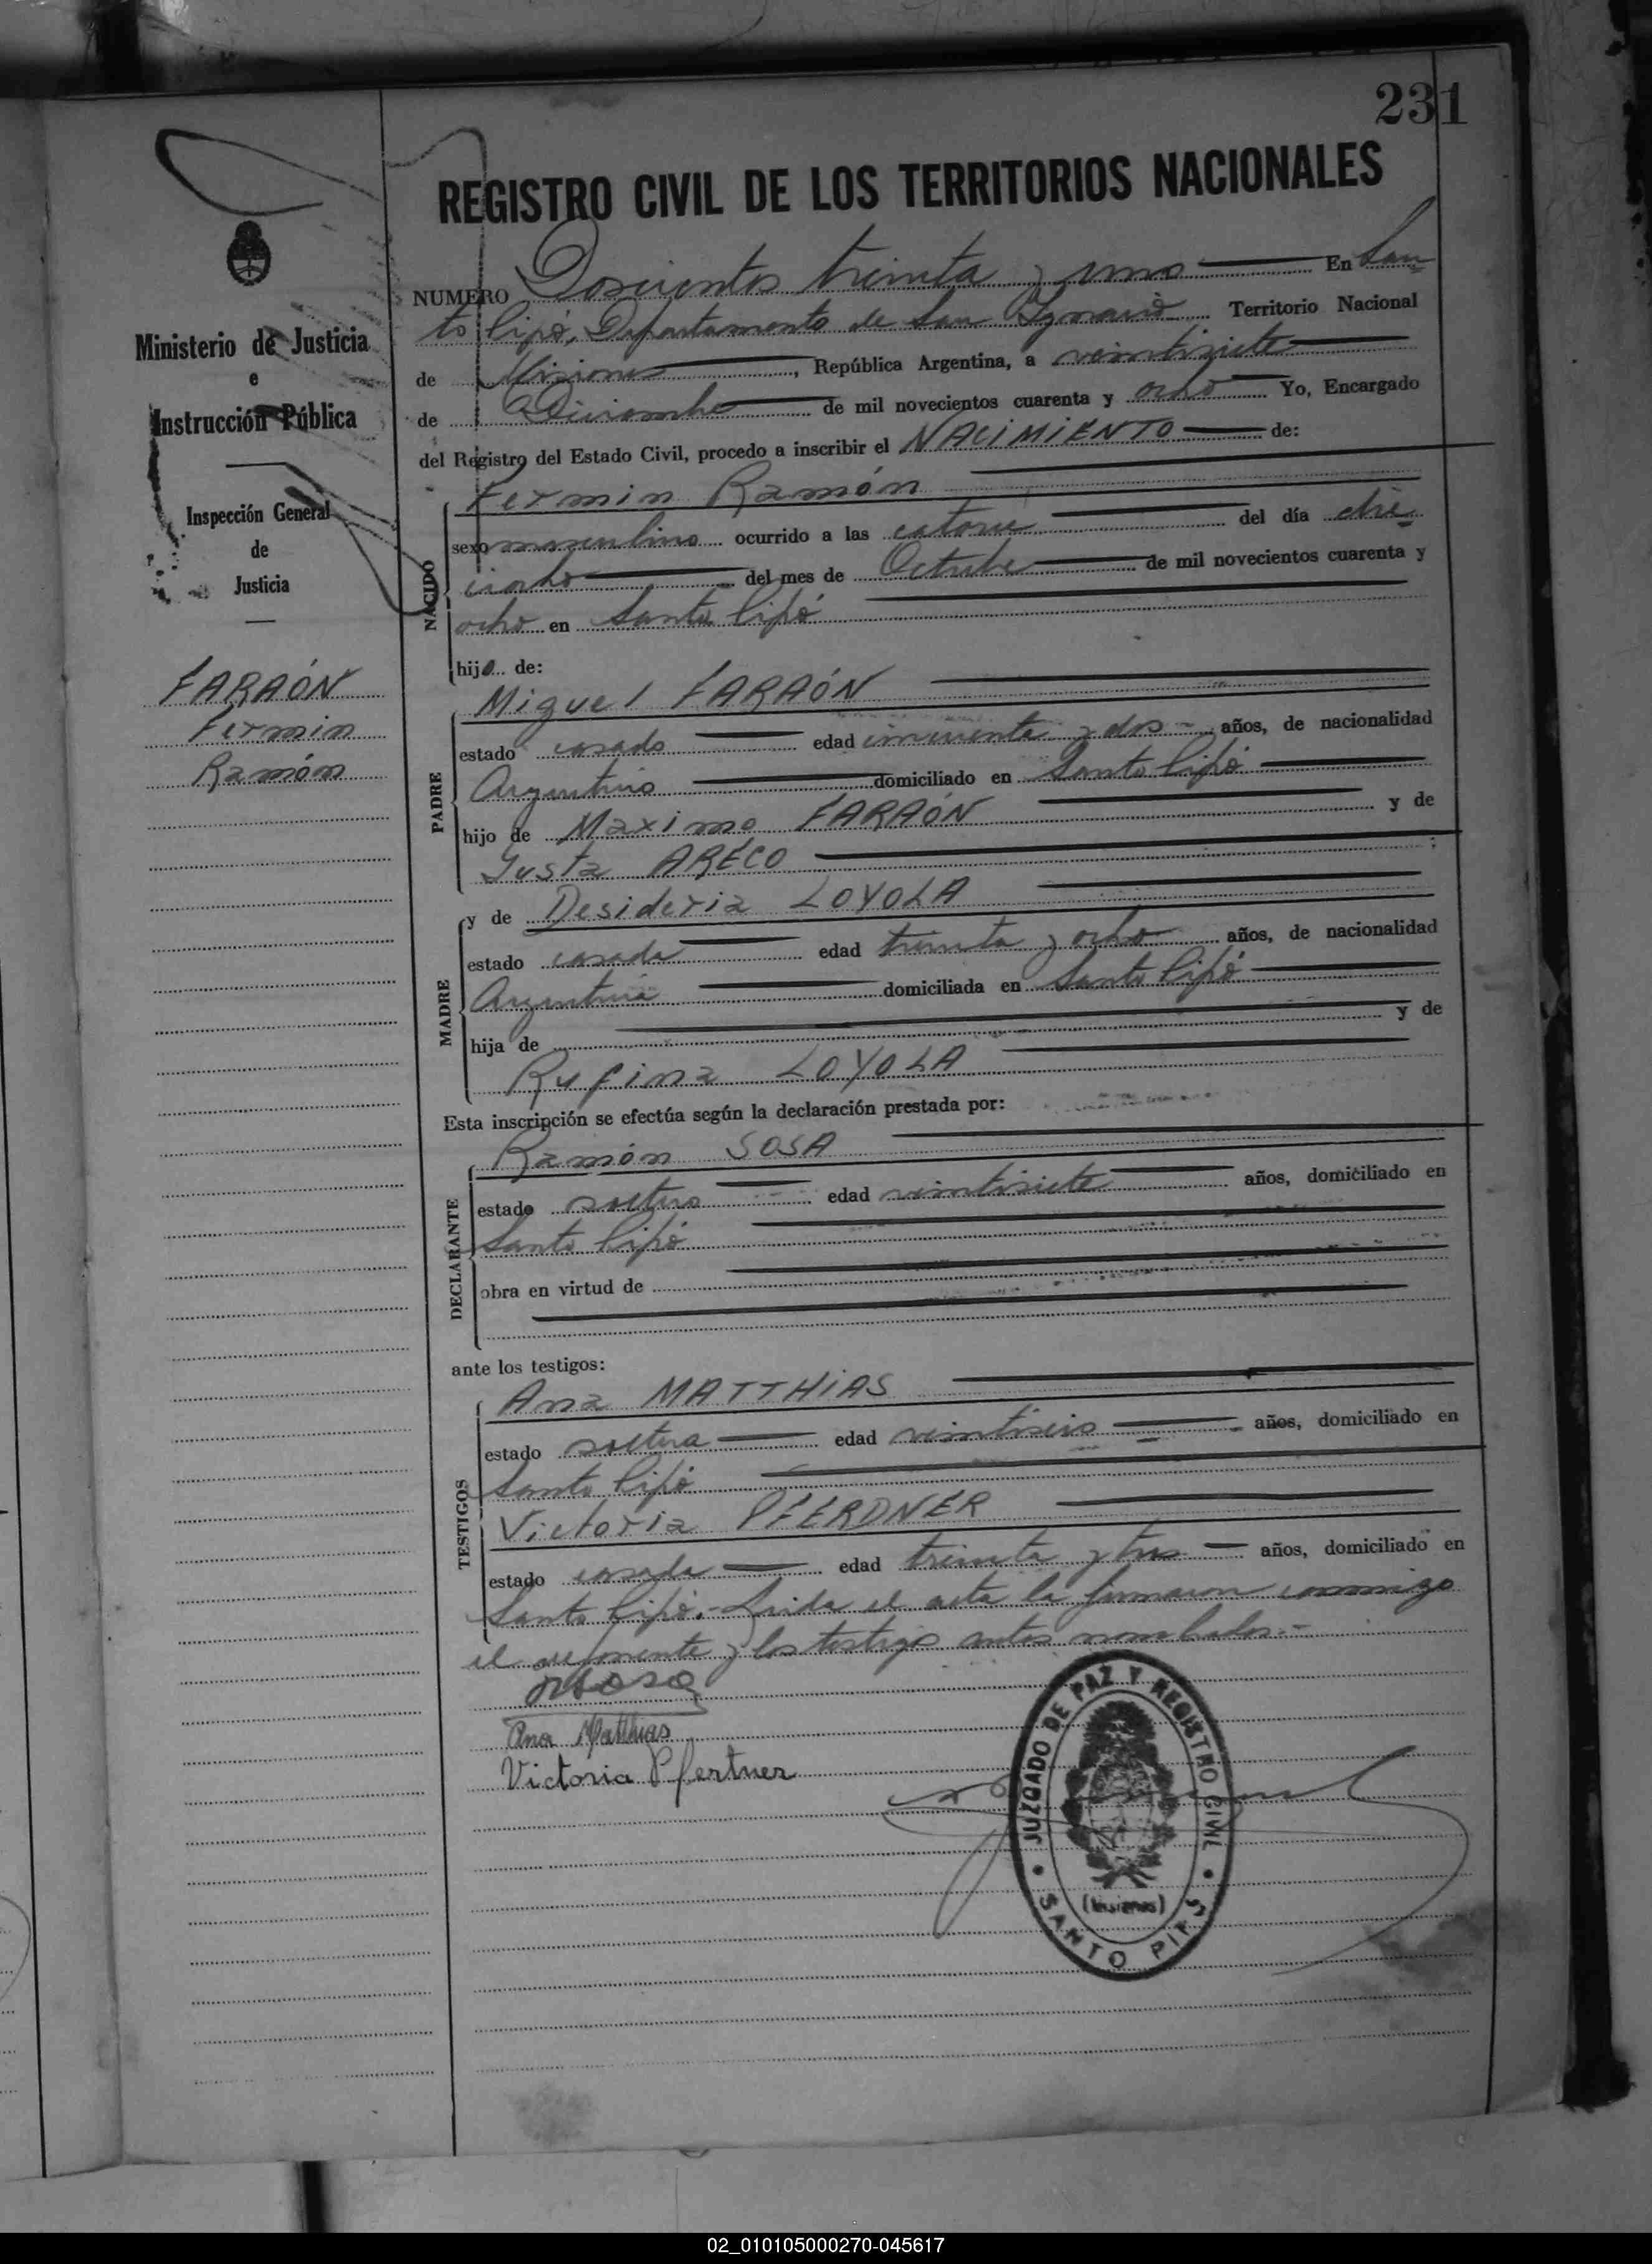 231
REGISTRO CIVIL DE LOS TERRITORIOS NACIONALES
Ministerio de Justicia
e
Instrucción Pública
Inspección General
de
Justicia
FARAÓN
Fermin
Ramón
NUMERO Doscientos treinta y uno En San
to Pipó, Departamento de San Ygnacio Territorio Nacional
de Misiones, República Argentina, a veintisiete
de Diciembre de mil novecientos cuarenta y ocho Yo, Encargado
del Registro del Estado Civil, procedo a inscribir el NACIMIENTO de:
NACIDO
Fermin Ramón
sexo masculino ocurrido a las catorce del día die
ciocho del mes de Octubre de mil novecientos cuarenta y
ocho en Santo Pipó
hijo de:
PADRE
Miguel FARAÓN
estado casado edad cincuenta y dos años, de nacionalidad
Argentino domiciliado en Santo Pipó
hijo de Maximo FARAÓN y de
Justa ARECO ;
MADRE
y de Desideria LOYOLA
estado casada edad treinta y ocho años, de nacionalidad
Argentina domiciliada en Santo Pipó
hija de y de
Rufina LOYOLA
Esta inscripción se efectúa según la declaración prestada por:
DECLARANTE
Ramón SOSA
estado soltero edad veintisiete años, domiciliado en
Santo Pipó
obra en virtud de
ante los testigos:
TESTIGOS
Ana MATTHIAS
estado soltera edad veintiseis años, domiciliado en
Santo Pipó
Victoria PFERDNER
estado casada edad treinta y tres años, domiciliado en
Santo Pipó.- Leida el acta la firmaron conmigo
el exponente y los testigos antes nombrados.-
Ana Matthias
Victoria Pfertner
JUZGADO DE PAZ Y REGISTRO CIVIL
(Misiones)
SANTO PIPÓ
02_010105000270-045617